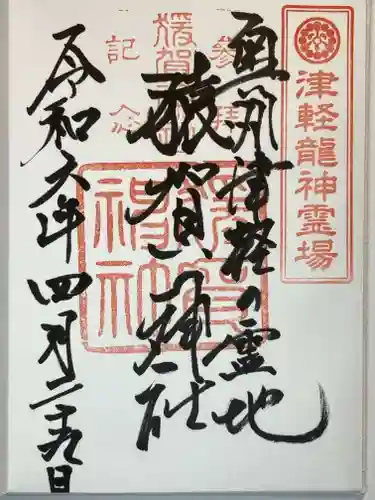 津軽龍神霊場
奥州津軽の霊地
猿賀神社
令和六年四月二十九日
参拝
記念
猿賀神社